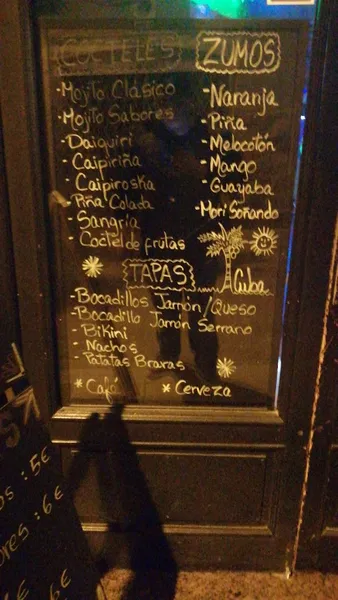 COCTELES
-Mojito Clásico
-Mojito Sabores
-Daiquiri
-Caipiriña
-Caipiroska
-Piña Colada
-Sangría
-Coctel de frutas
ZUMOS
-Naranja
-Piña
-Melocotón
-Mango
-Guayaba
-Mori Soñando
Cuba
TAPAS
-Bocadillos Jamón/Queso
-Bocadillo Jamón Serrano
-Bikini
-Nachos
-Patatas Bravas
*Café
*Cerveza
: 5€
: 6€
6€